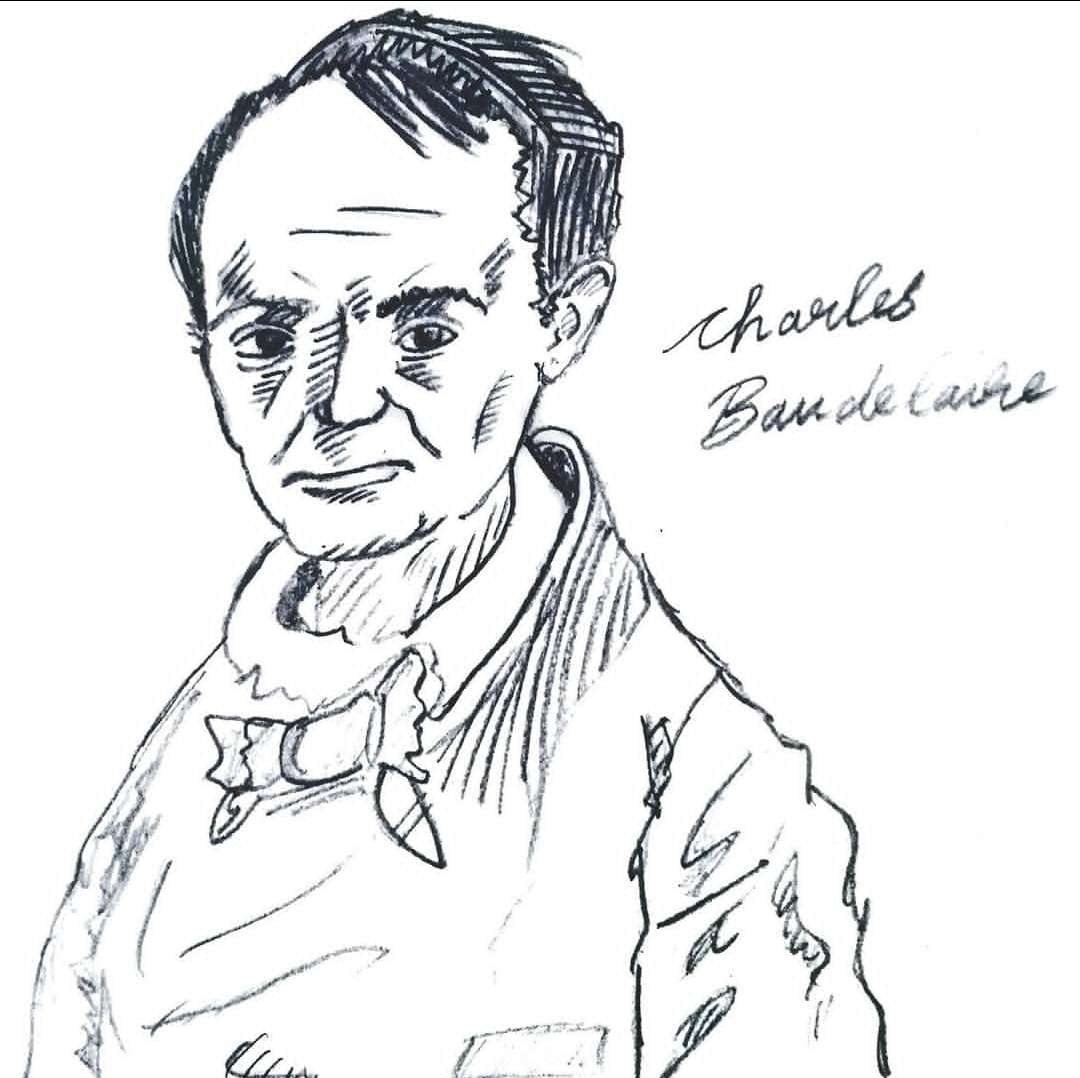 Charles
Baudelaire